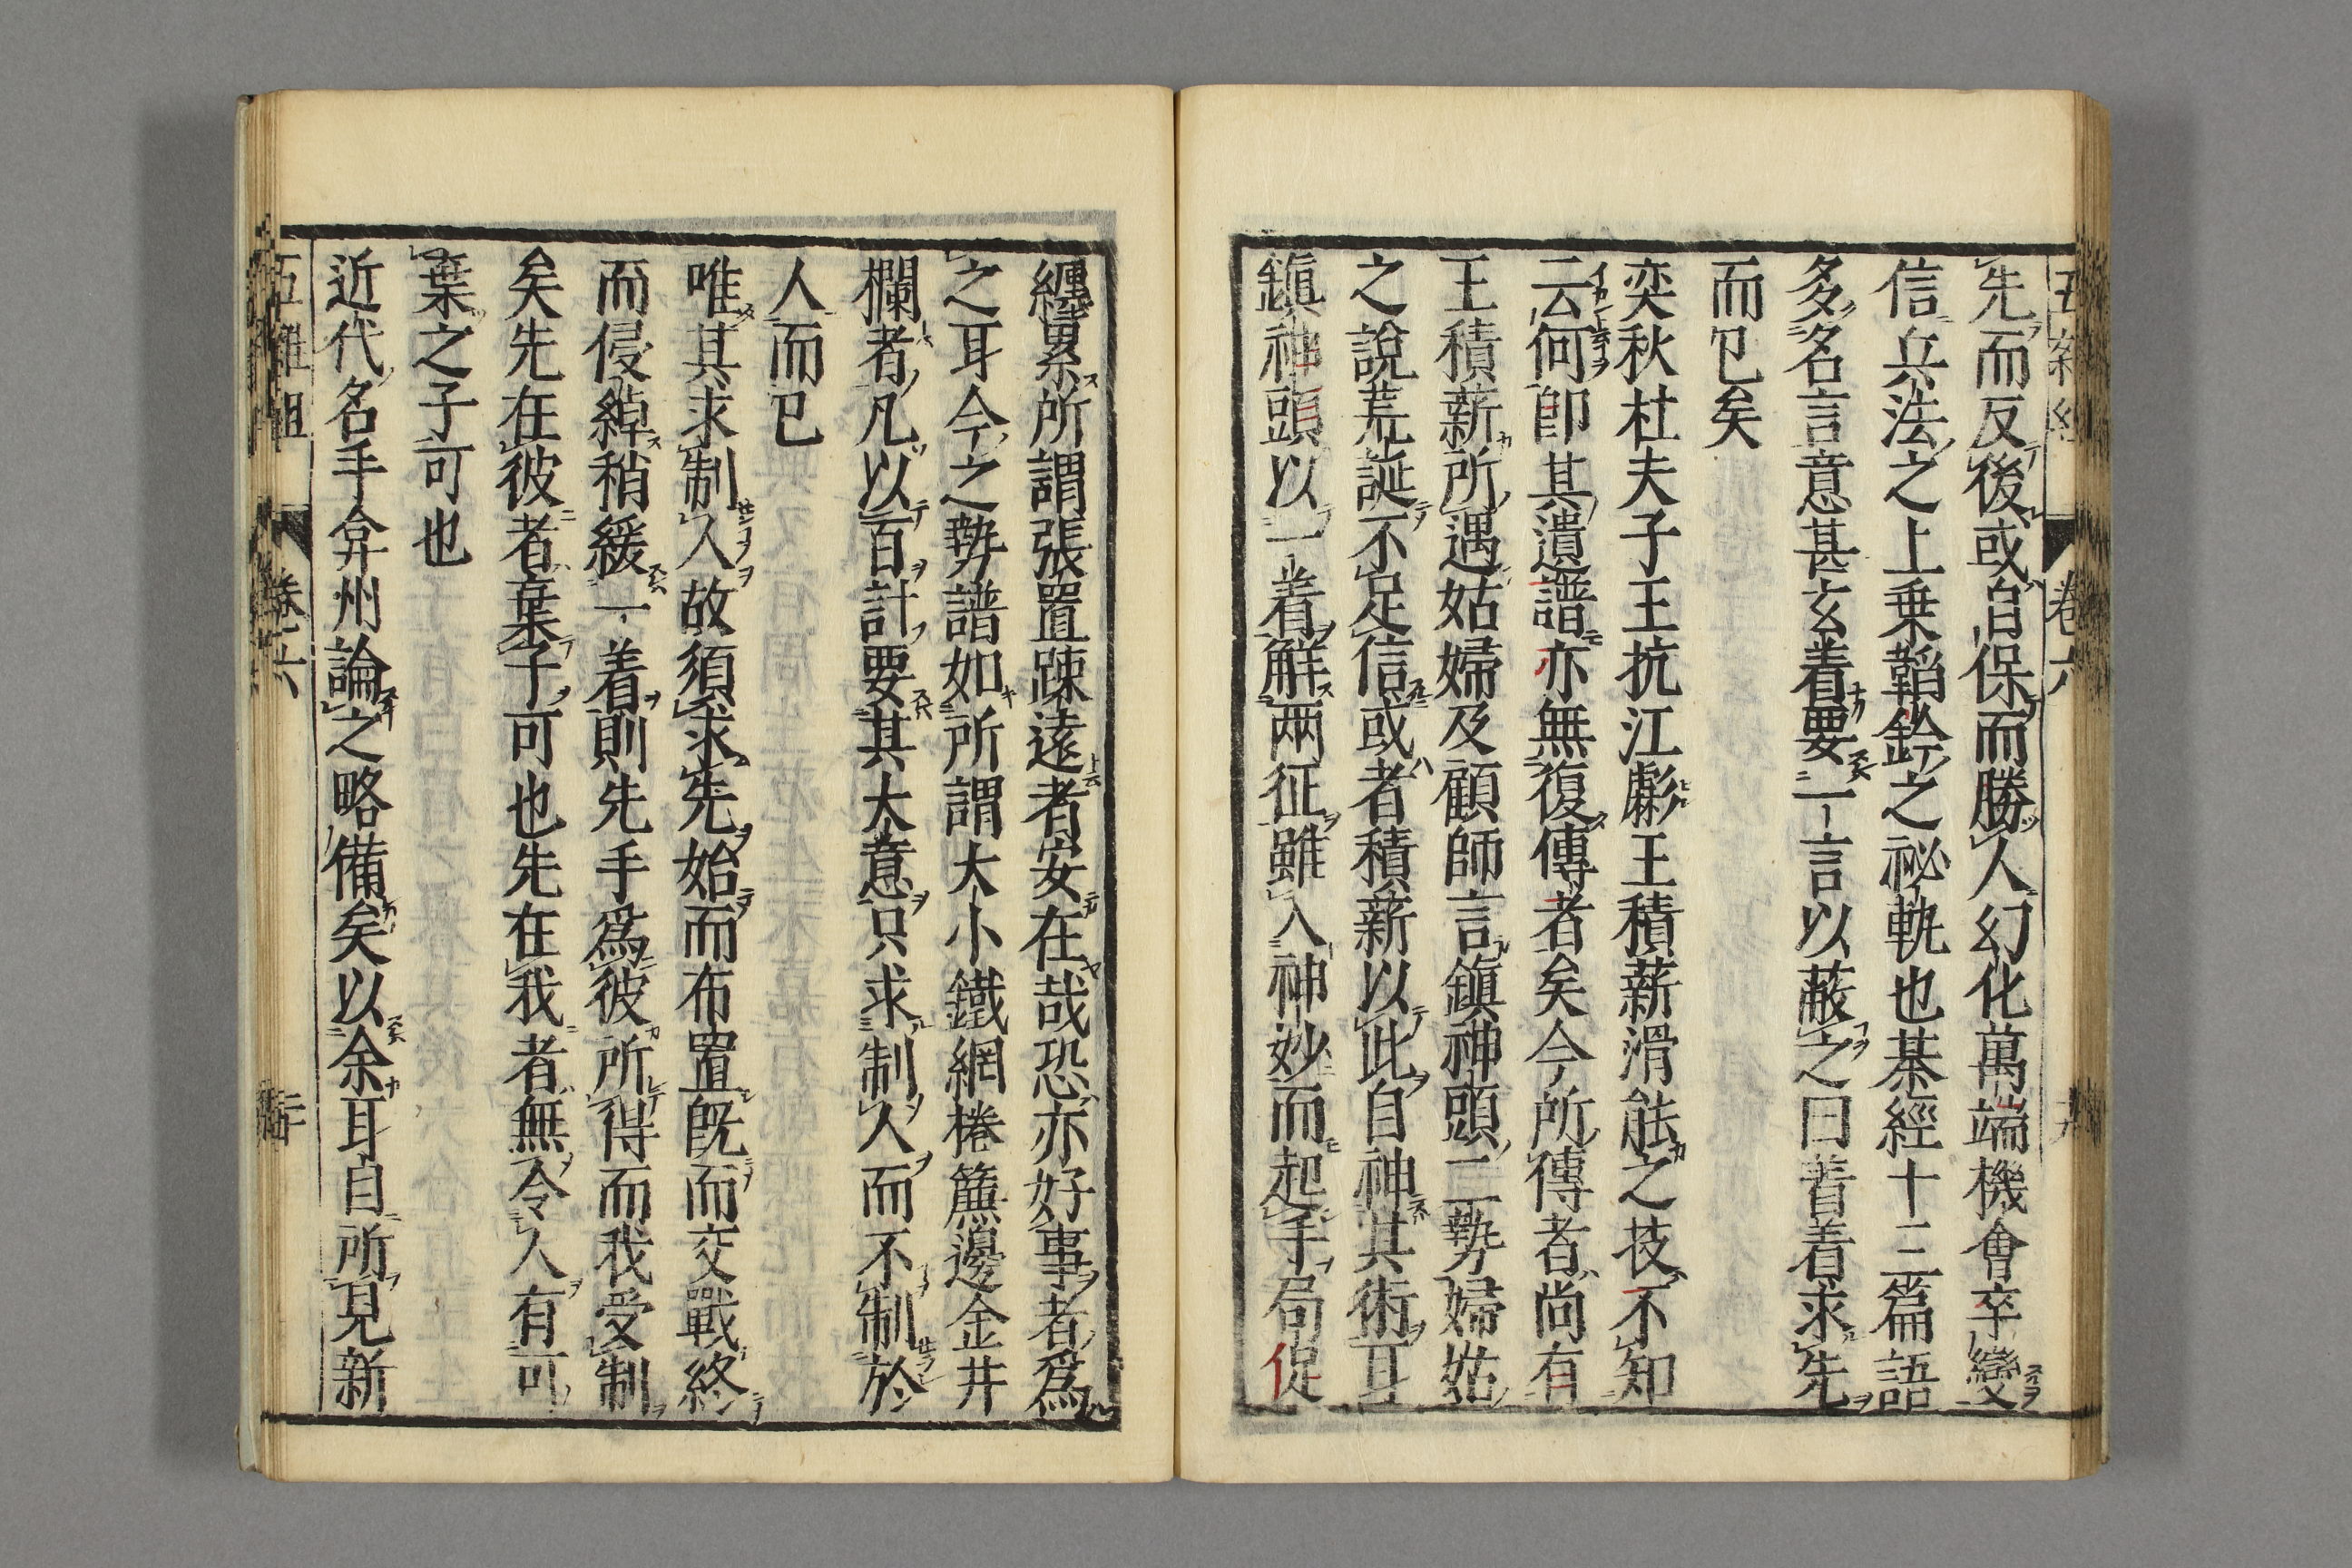 先而反後或自保而勝人幻化萬端機會卒變
信兵法之上乗韜鈐之祕軌也棊經十三篇語
多名言意甚玄着要一言以蔽之曰着着求先
而已矣
奕秋杜夫子王抗江虨王積薪滑能之技不知
云何卽其遺譜亦無復傳者矣今所傳者尚有
王積薪所遇姑婦及顧師言鎮神頭二勢婦姑
之說荒誕不足信或者積薪以此自神其術耳
鎮神頭以一着解兩征雖入神妙而起手局促
纏累所謂張置踈遠者安在哉恐亦好事者爲
之耳今之勢譜如所謂大小鐵網捲簾邊金井
欄者凡以百計要其大意只求制人而不制於
人而已
唯其求制人故須求先始而布置旣而交戰終
而侵綽稍緩一着則先手爲彼所得而我受制
矣先在彼者棄子可也先在我者無令人有可
棄之子可也
近代名手弇州論之略備矣以余耳目所見新
五雜組 卷六